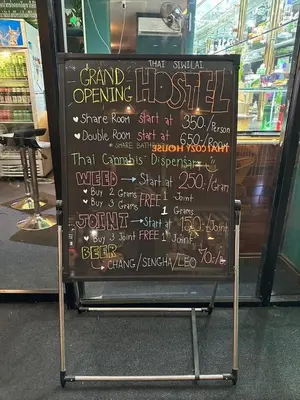 THAI SIWILAI
GRAND
OPENING
HOSTEL
Share Room start at 350/Person
Double Room start at 650/Room
* SHARE BATH
Thai Cannabis Dispensary
WEED → Start at 250./Gram
Buy 2 Grams FREE 1 Joint
Buy 3 Grams 1 Grams
JOINT → Start at 150./Joint
Buy 3 Joint FREE 1 Joint
BEER 70.-
CHANG/SINGHA/LEO